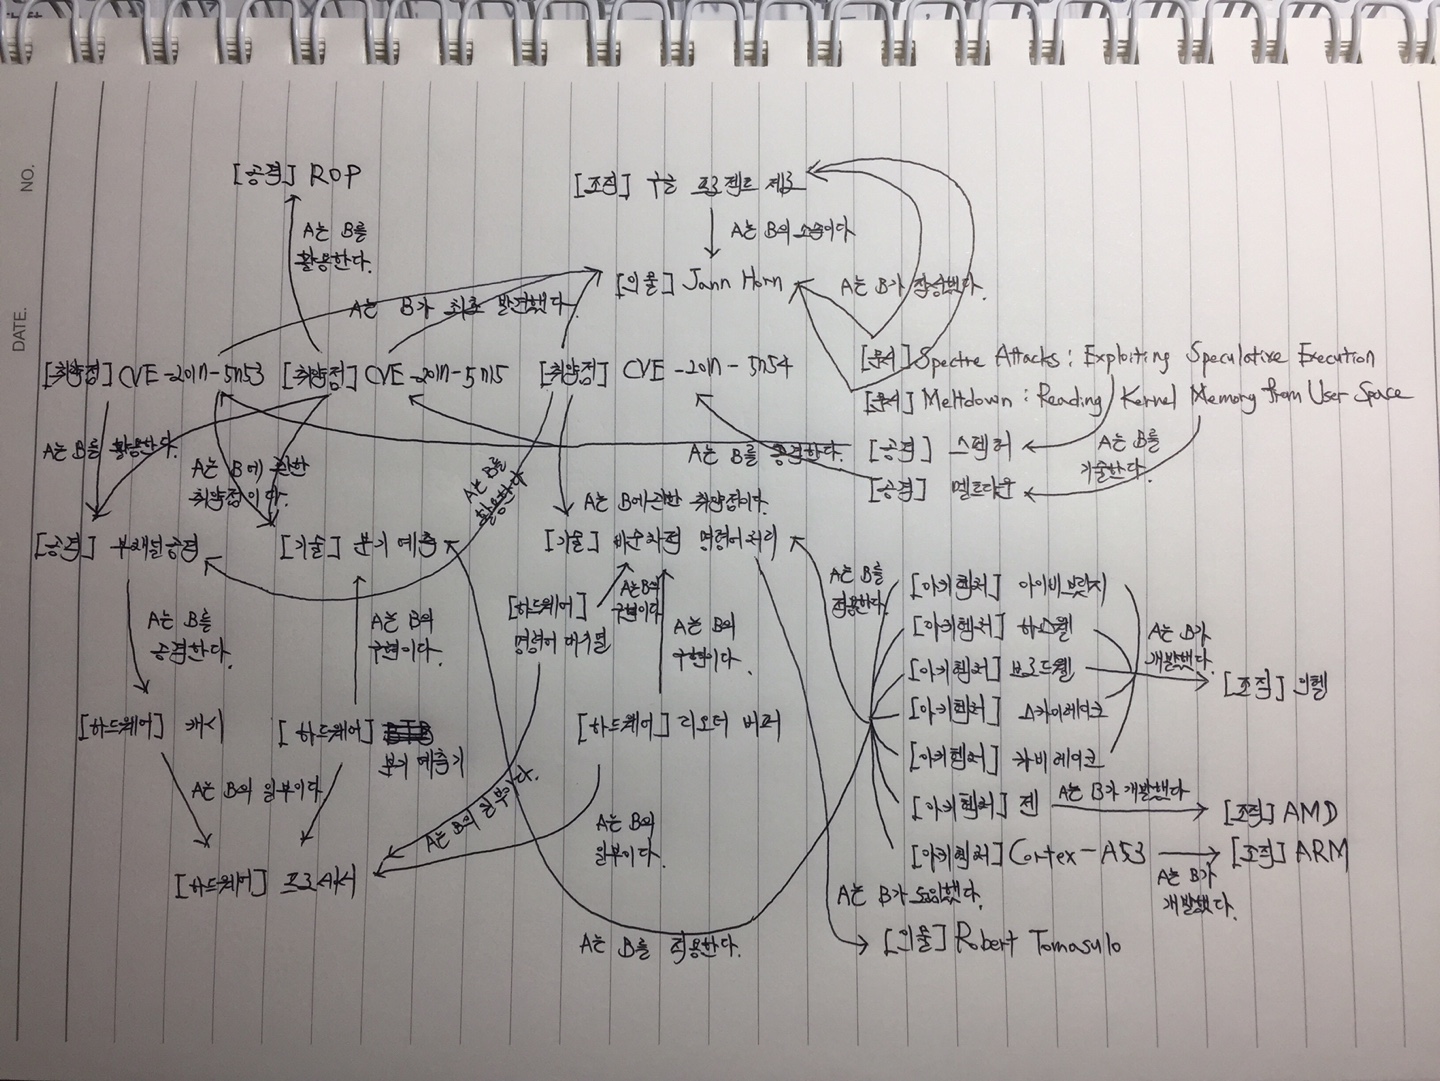 NO.
DATE.
[공격] ROP
[조직] 구글 프로젝트 제로
A는 B를
활용한다.
A는 B의 소속이다.
[인물] Jann Horn
A는 B가 작성했다.
A는 B가 최초 발견했다.
[취약점] CVE-2017-5753
[취약점] CVE-2017-5715
[취약점] CVE-2017-5754
[문서] Spectre Attacks: Exploiting Speculative Execution
[문서] Meltdown: Reading Kernel Memory from User Space
A는 B를 활용한다.
A는 B에 관한
취약점이다.
A는 B를
활용한다
A는 B를 공격한다.
[공격] 스펙터
[공격] 멜트다운
A는 B를
기술한다.
A는 B에 관한 취약점이다.
[공격] 부채널 공격
[기술] 분기 예측
[기술] 비순차적 명령어 처리
A는 B를
공격한다.
A는 B의
구현이다.
[하드웨어]
명령어 대수열
A는 B의
구현이다.
A는 B의
구현이다.
A는 B를
적용한다.
[아키텍처] 아이비브릿지
[아키텍처] 하스웰
[아키텍처] 브로드웰
[아키텍처] 스카이레이크
[아키텍처] 카비레이크
[아키텍처] 젠
[아키텍처] Cortex-A53
A는 B가
개발했다.
[조직] 인텔
A는 B가 개발했다
[조직] AMD
[조직] ARM
A는 B가
개발했다.
[하드웨어] 캐시
[하드웨어]
분기 예측기
[하드웨어] 리오더 버퍼
A는 B의 일부이다
A는 B의 일부이다.
A는 B의
일부이다.
[하드웨어] 프로세서
A는 B가 도입했다.
[인물] Robert Tomasulo
A는 B를 적용한다.